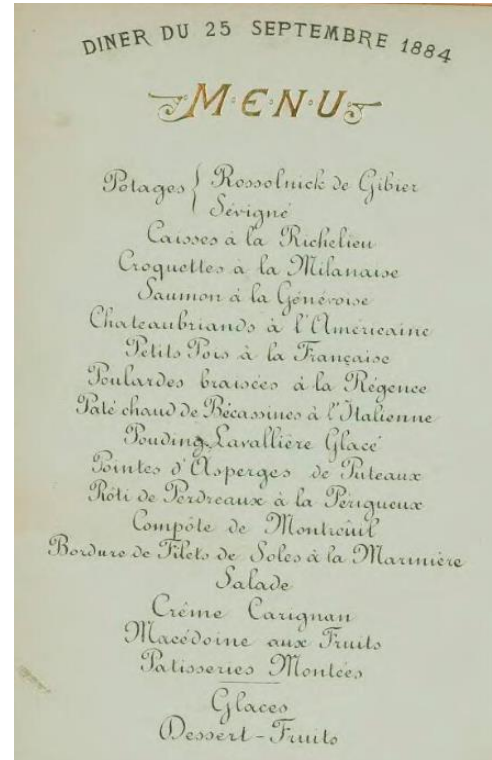 DINER DU 25 SEPTEMBRE 1884
MENU
Potages { Rossolnick de Gibier
Sévigné
Caisses à la Richelieu
Croquettes à la Milanaise
Saumon à la Génévoise
Chateaubriands à l'Américaine
Petits Pois à la Française
Poulardes braisées à la Régence
Paté chaud de Bécassines à l'Italienne
Pouding Lavallière Glacé
Pointes d'Asperges de Puteaux
Rôti de Perdreaux à la Périgueux
Compôte de Montreuil
Bordure de Filets de Soles à la Marinière
Salade
Crême Carignan
Macédoine aux Fruits
Patisseries Montées
Glaces
Dessert-Fruits